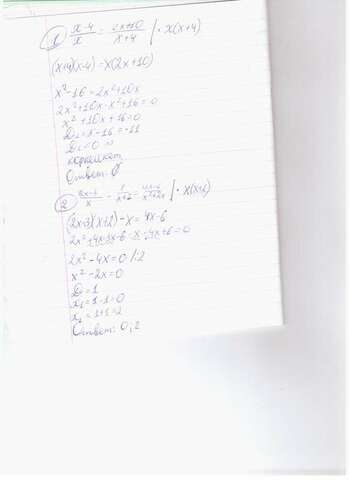 1 x-4/x = 2x+10/x+4 | · x(x+4)
(x+4)(x-4) = x(2x+10)
x²-16 = 2x²+10x
2x²+10x-x²+16=0
x²+10x+16=0
D₁= -16=-11
D₁<0 ⇒
корней нет
Ответ: ∅
2 2x-3/x - 1/x+2 = 4x-6/x²+2x | · x(x+2)
(2x-3)(x+2)-x = 4x-6
2x²+4x-3x-6-x-4x+6=0
2x²-4x=0 /:2
x²-2x=0
D=1
x₁=1-1=0
x₂=1+1=2
Ответ: 0;2